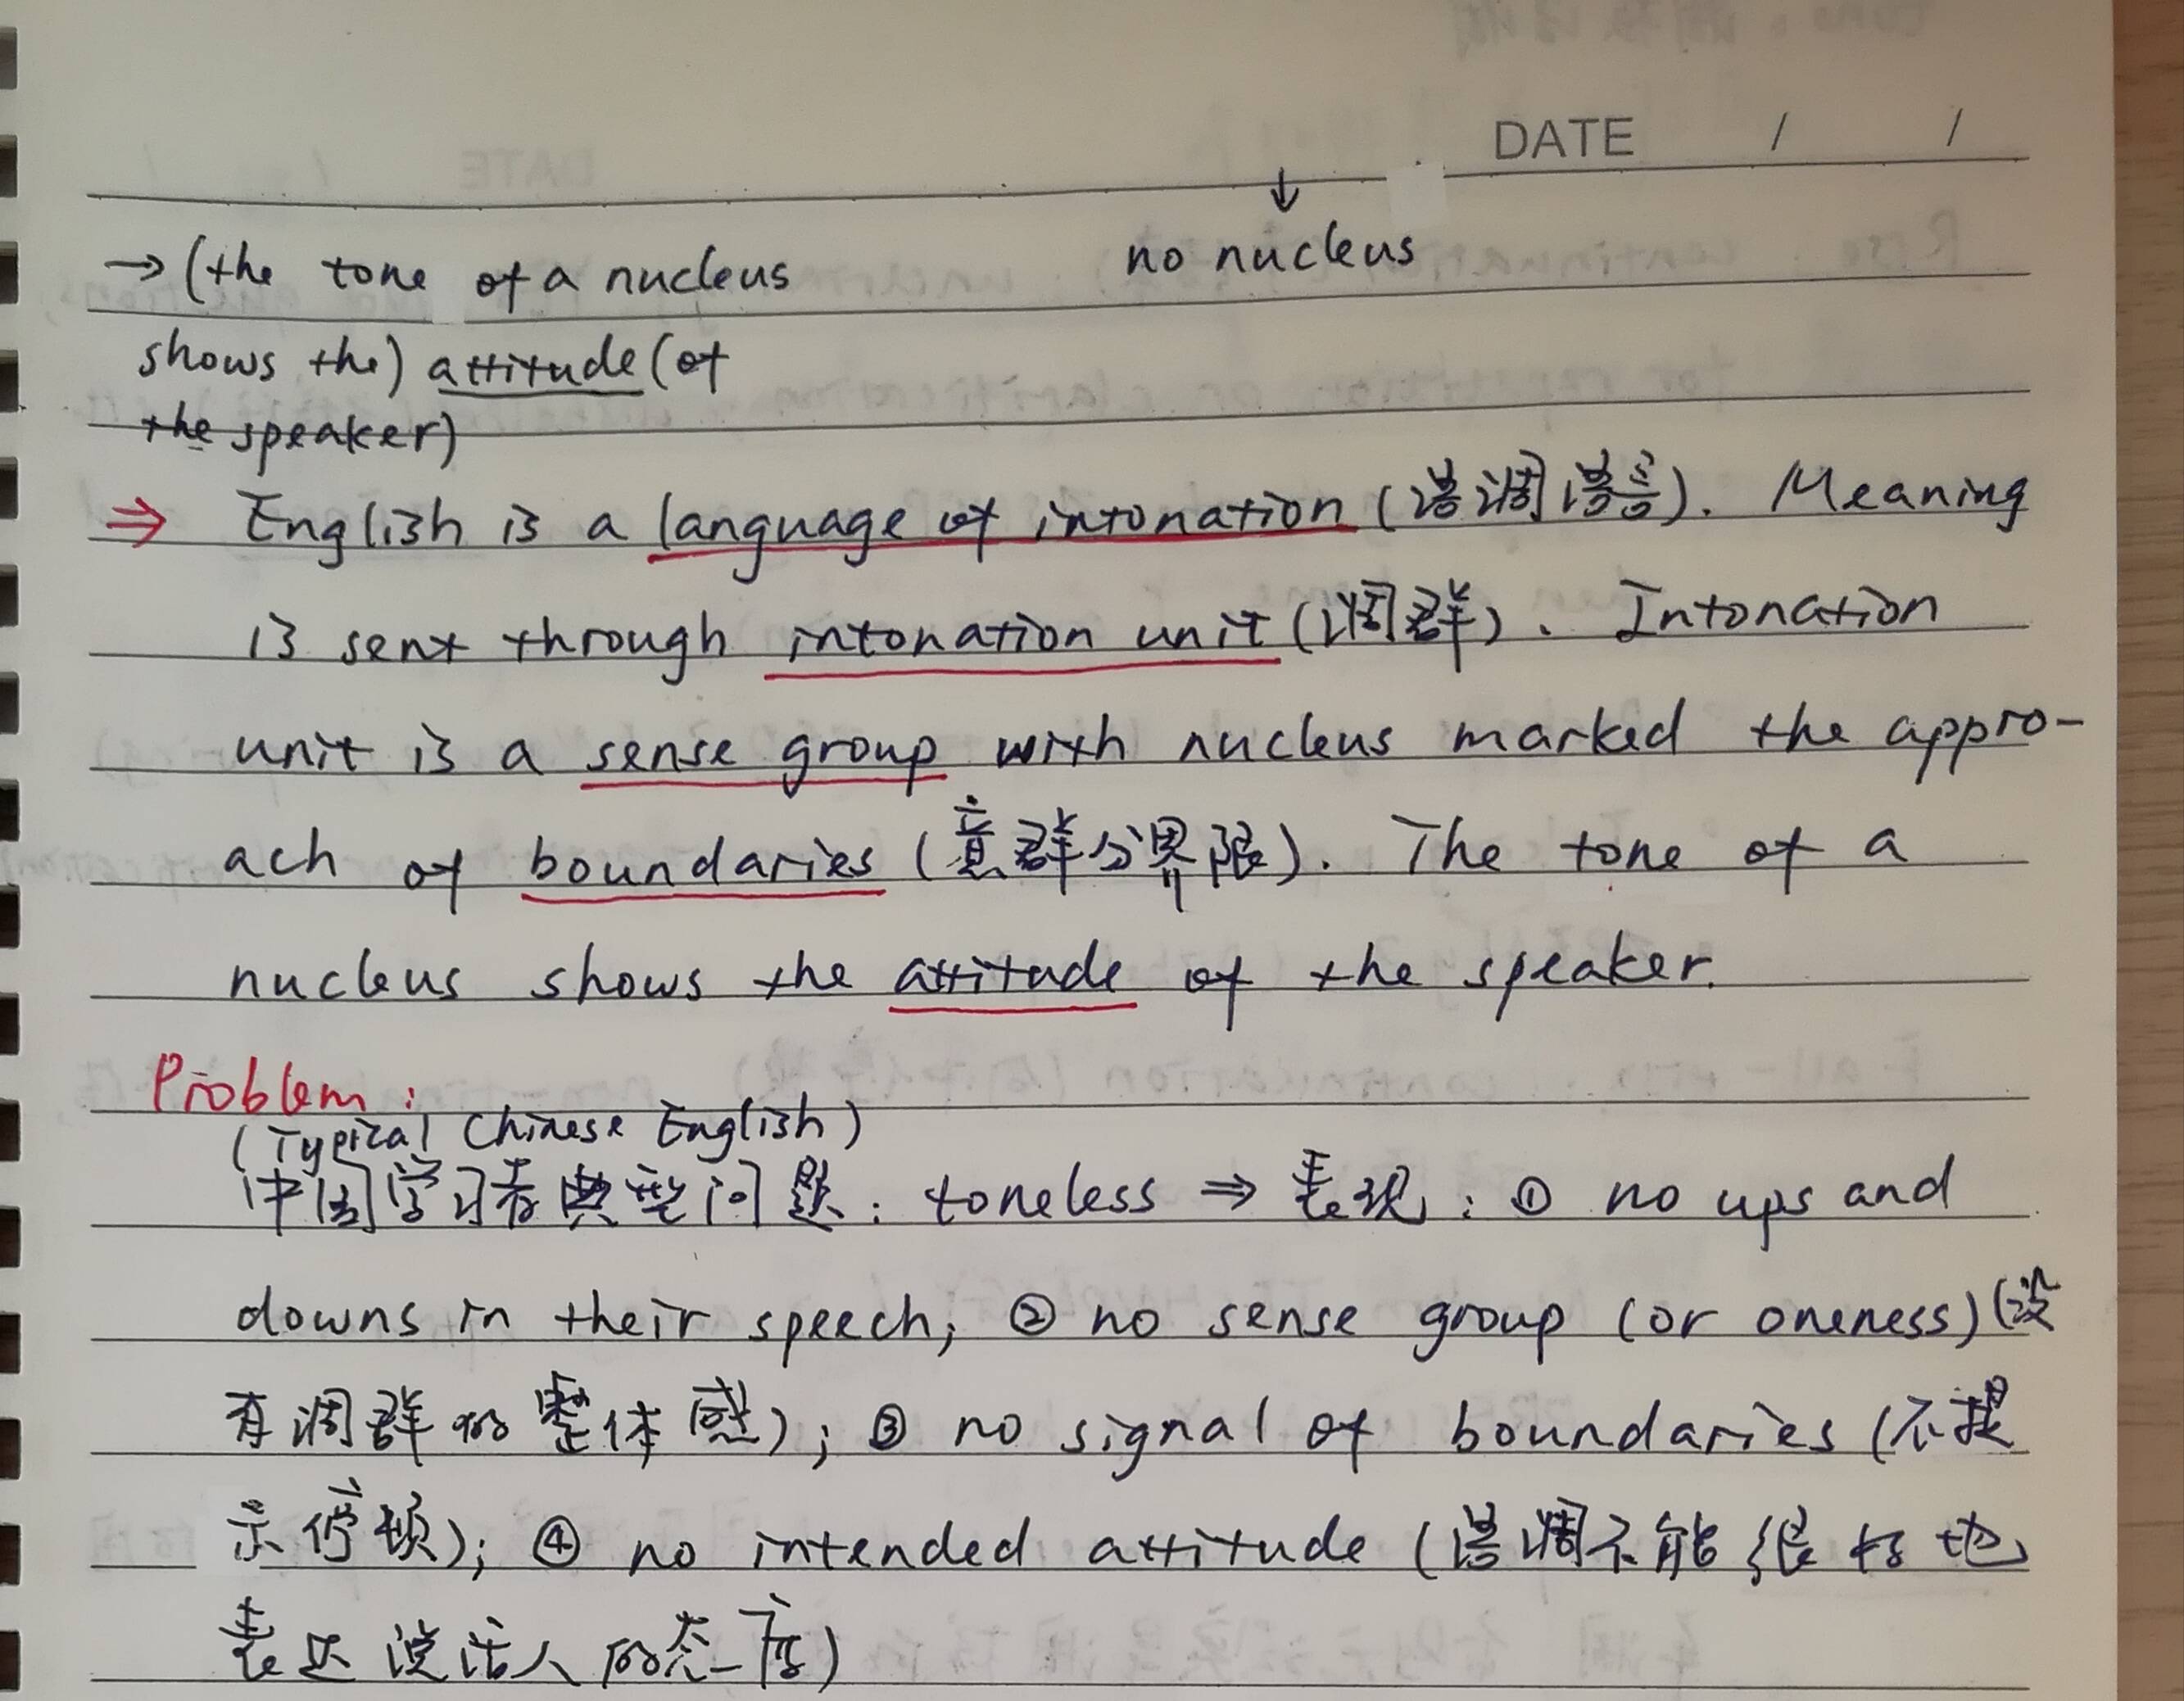 DATE / /
↓
→ (the tone of a nucleus no nucleus
shows the) attitude (of
the speaker)
⇒ English is a language of intonation (语调语言). Meaning
is sent through intonation unit (调群). Intonation
unit is a sense group with nucleus marked the appro-
ach of boundaries (意群分界限). The tone of a
nucleus shows the attitude of the speaker.
Problem:
(Typical Chinese English)
中国学习者典型问题: toneless ⇒ 表现: ① no ups and
downs in their speech; ② no sense group (or oneness) (没
有调群的整体感); ③ no signal of boundaries (不提
示停顿); ④ no intended attitude (语调不能很好地
表达说话人的态度)